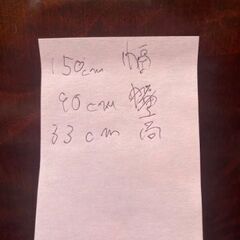 150cm 幅
90cm
33cm 高